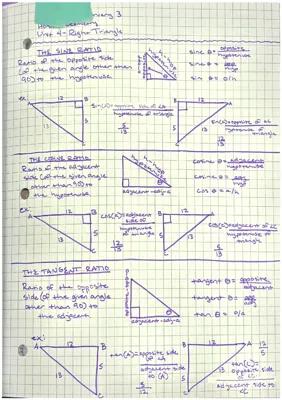 Unit 4-Right Triangle
THE SINE RATIO
Ratio of the opposite side
(of the given angle other than
90) to the hypotenuse
h=hyp
sine θ=opposite
hypotenuse
sine θ=opp
hyp
sin θ=o/h
ex:
A 12 B
13 5
C
sin(A)=opposite side of ∠A
hypotenuse of triangle
5
13
B 12 A
5 13
C
12
13
THE COSINE RATIO
Ratio of the adjacent
side (of the given angle
other than 90) to
the hypotenuse
h=hyp
adjacent=adj=a
cosine θ=adjacent
hypotenuse
cosine θ=adj
hyp
cos θ=a/h
ex:
A 12 B
13 5
C
cos(A)=adjacent side of ∠A
hypotenuse of triangle
12
13
B 12 A
5 13
C
cos(C)=adjacent of ∠C
hypotenuse of triangle
5
13
THE TANGENT RATIO
Ratio of the opposite
side (of the given angle
other than 90) to
the adjacent
adjacent=adj=a
tangent θ=opposite
adjacent
tangent θ=opp
adj
tan θ=o/a
ex:
A 12 B
13 5
C
tan(A)=opposite side of ∠A
adjacent side to (A)
5
12
B 12 A
5 13
C
12
5
tan(C)=
opposite side of ∠C
adjacent side to ∠C